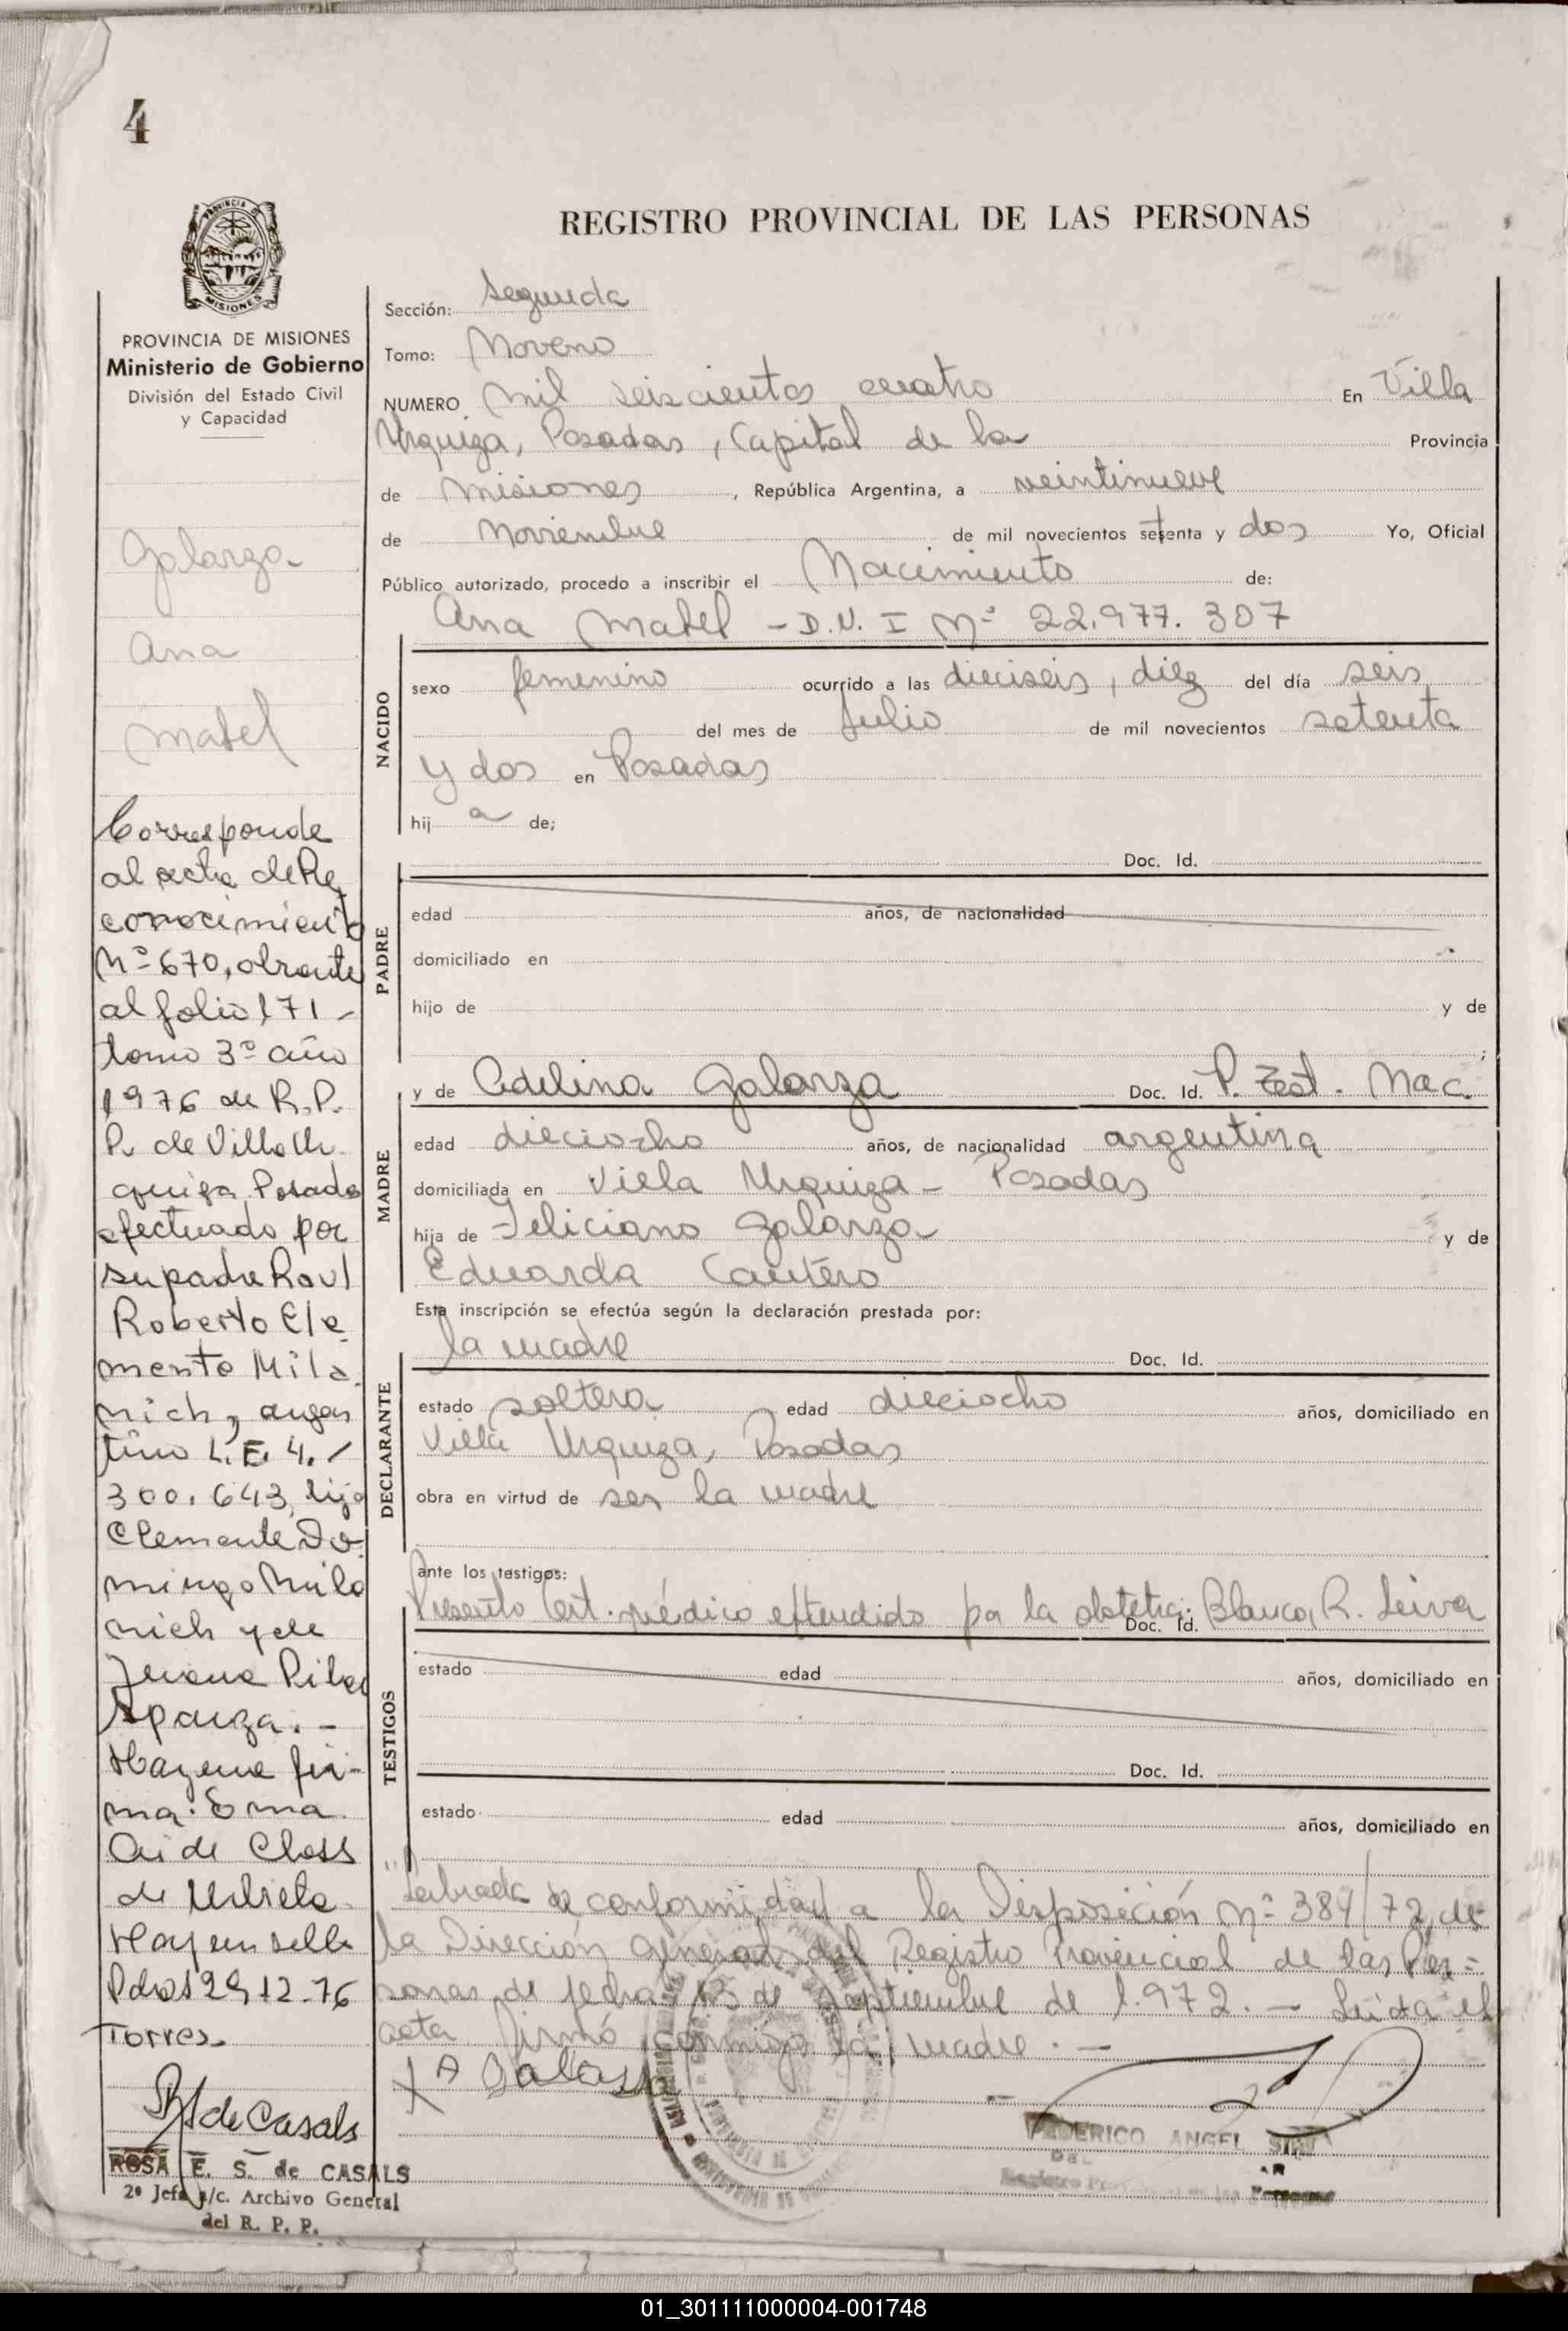 4
PROVINCIA DE
MISIONES
PROVINCIA DE MISIONES
Ministerio de Gobierno
División del Estado Civil
y Capacidad
Galarza
Ana
Mabel
Corresponde
al acta de Re
conocimiento
Nº 670, obrante
al folio 171 -
tomo 3º año
1976 de R.P.
P. de Villa Ur
quiza Posadas
efectuado por
su padre Raul
Roberto Cle
mente Mila
nich, argen
tino L.E. 4./
300.643, hijo
Clemente Do
mingo Mila
nich y de
Juana Pilar
Aparza. -
Hay una fir-
ma: Ema
de Closs
de Urbieta
Hay un sello
Pdas 29-12-76
Torres
R S de Casals
ROSA E. S. de CASALS
2º Jefa a/c. Archivo General
del R. P. P.
REGISTRO PROVINCIAL DE LAS PERSONAS
Sección: Segunda
Tomo: Noveno
NUMERO Mil seiscientos cuatro En Villa
Urquiza, Posadas, Capital de la Provincia
de Misiones, República Argentina, a veintinueve
de Noviembre de mil novecientos setenta y dos Yo, Oficial
Público autorizado, procedo a inscribir el Nacimiento de:
Ana Mabel - D.N.I Nº 22.977.307
NACIDO
sexo femenino ocurrido a las dieciseis, diez del día seis
del mes de Julio de mil novecientos setenta
y dos en Posadas
hij a de;
Doc. Id.
PADRE
edad años, de nacionalidad
domiciliado en
hijo de y de
;
y de Adelina Galarza Doc. Id. P. Test. Nac.
MADRE
edad dieciocho años, de nacionalidad argentina
domiciliada en Villa Urquiza - Posadas
hija de Feliciano Galarza y de
Eduarda Cantero
Esta inscripción se efectúa según la declaración prestada por:
la madre Doc. Id.
DECLARANTE
estado soltera edad dieciocho años, domiciliado en
Villa Urquiza, Posadas
obra en virtud de ser la madre
ante los testigos:
Presento Cert. médico extendido por la obstetra: Blanca R. Leiva
Doc. Id.
TESTIGOS
estado edad años, domiciliado en
Doc. Id.
estado edad años, domiciliado en
"Labrada de conformidad a la Disposición Nº 384/72, de
la Dirección General del Registro Provincial de las Per=
sonas de fecha 13 de Septiembre de 1.972. - Leida el
acta firmó conmigo la madre. -
A Galarza
FEDERICO ANGEL
Registro Provincial de las Personas
01_301111000004-001748